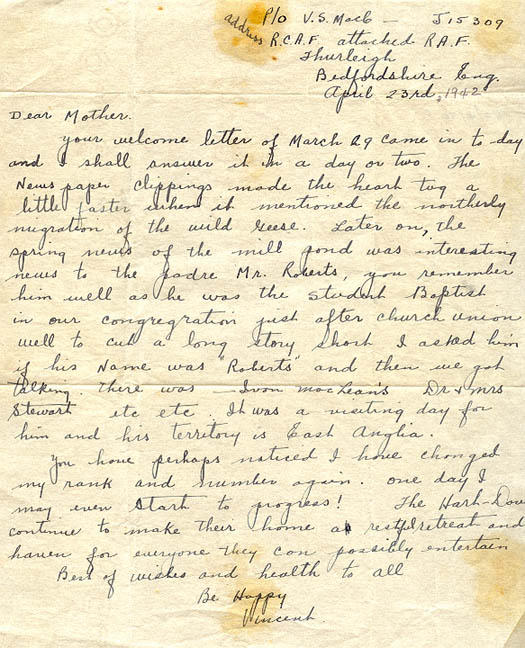 address P/o V.S. MacG — J15309
R.C.A.F. attached R.A.F.
Thurleigh
Bedfordshire Eng.
April 23rd, 1942
Dear Mother.
your welcome letter of March 29 came in to-day
and I shall answer it in a day or two. The
News paper clippings made the heart tug a
little faster when it mentioned the northerly
migration of the wild geese. Later on, the
spring news of the mill pond was interesting
news to the padre Mr. Roberts, you remember
him well as he was the student Baptist
in our congregration just after church union
well to cut a long story short I asked him
if his Name was "Roberts" and then we got
talking. there was Ivon MacLean's Dr & Mrs
Stewart etc etc. It was a visiting day for
him and his territory is East Anglia.
You have perhaps noticed I have changed
my rank and number again. one day I
may even start to progress! The Hart-Dav
continue to make their home a restful retreat and
haven for everyone they can possibly entertain
Best of wishes and health to all
Be Happy
Vincent.